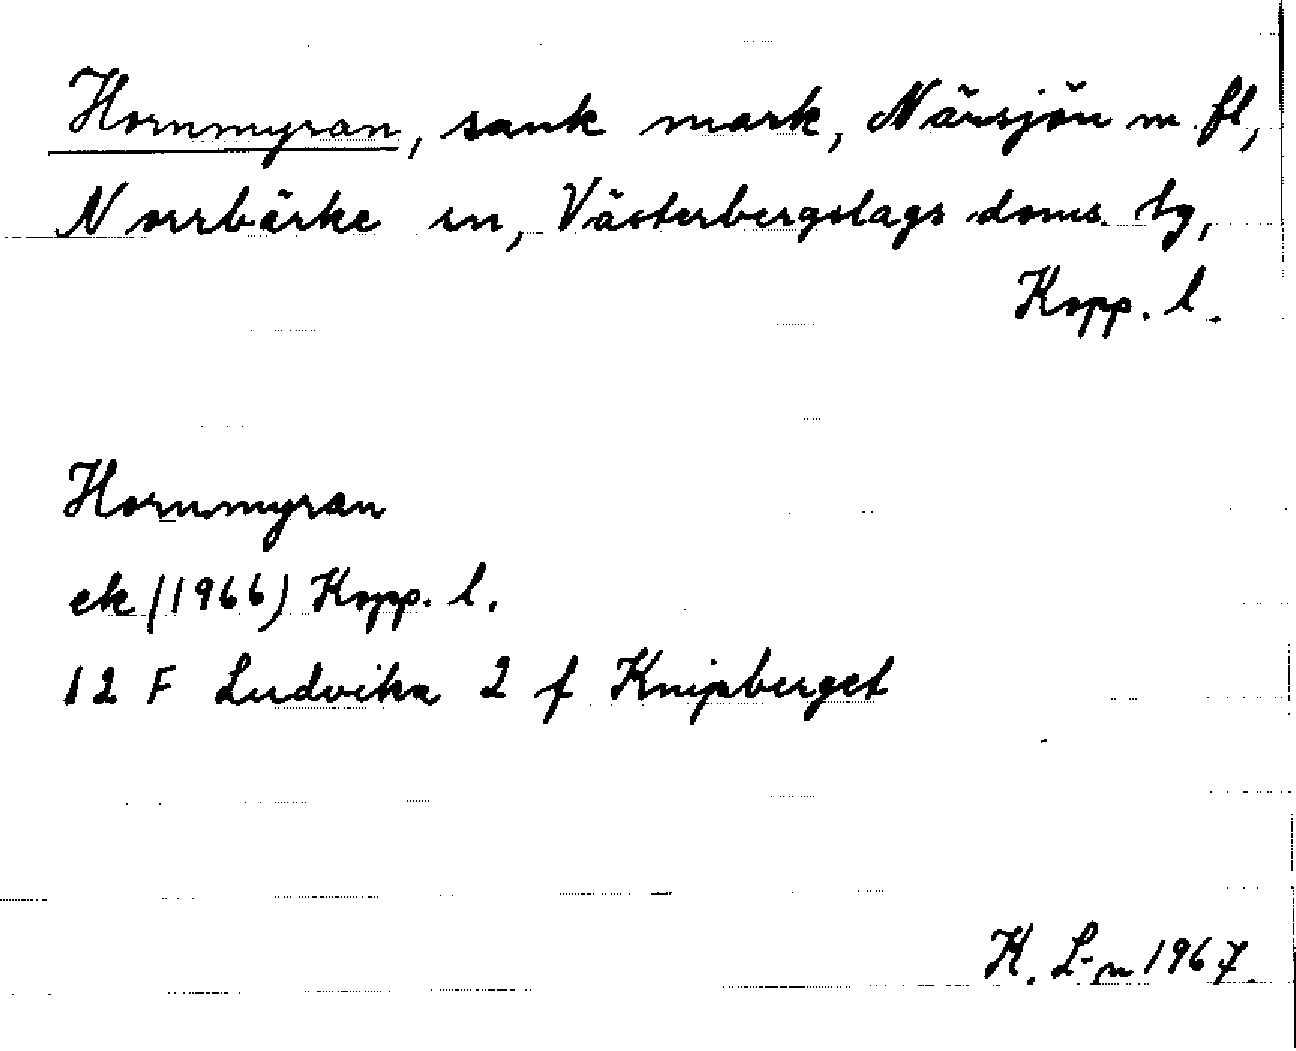 Hornmyran, sank mark, Närsjön m fl,
Norrbärke sn, Västerbergslags doms. hg,
Kopp. l.
Hornmyran
ek (1966) Kopp. l.
12 F Ludvika 2 f Knipberget
K. L-n 1967.